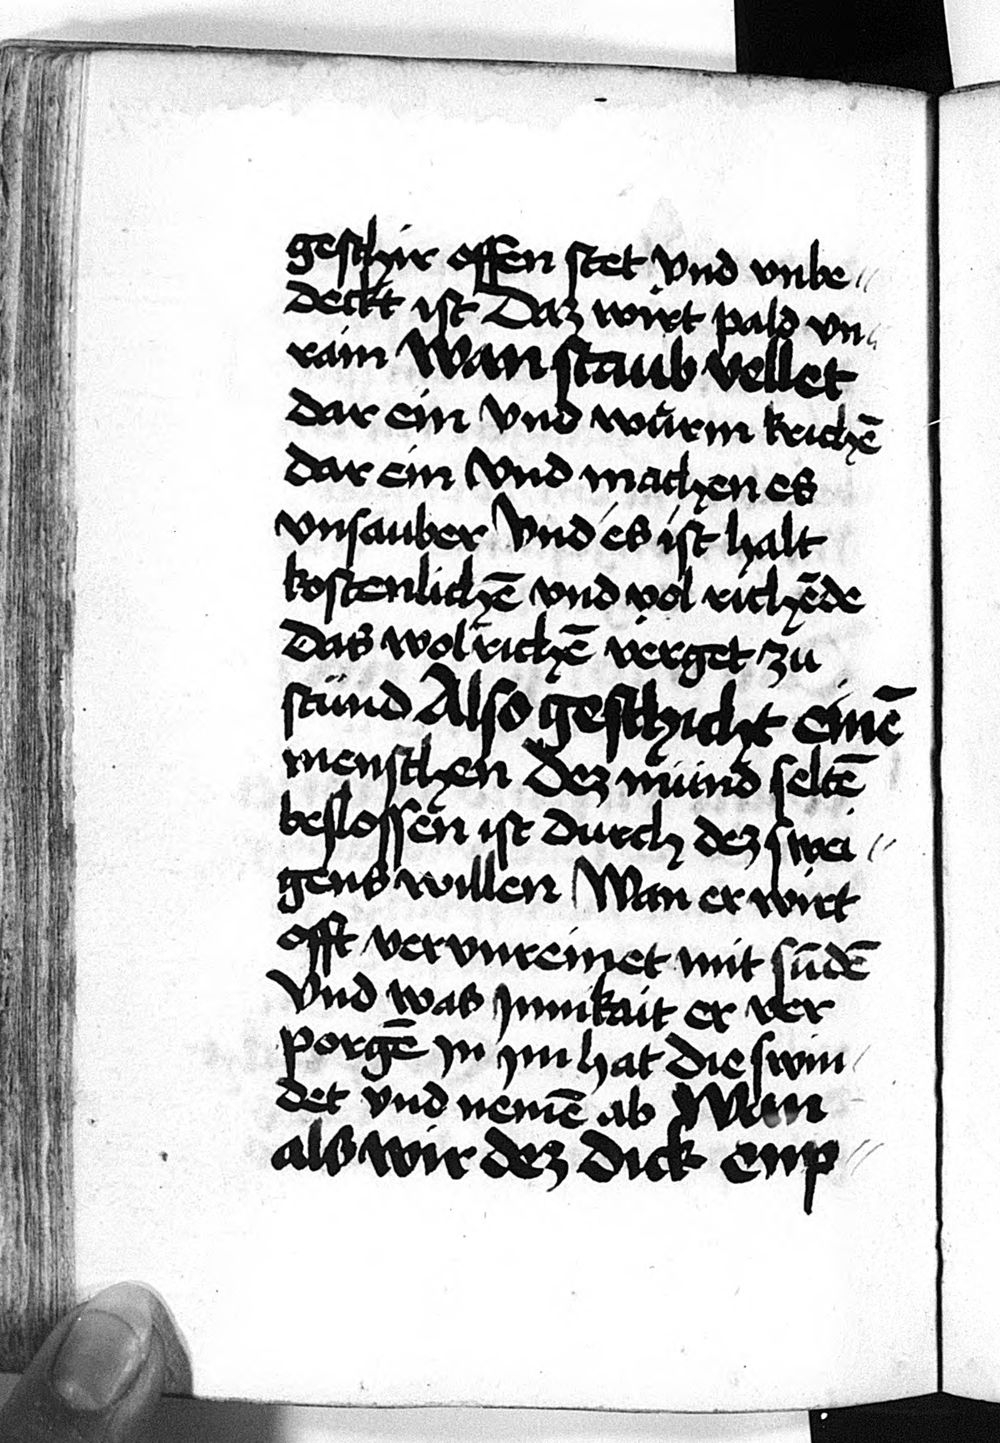 geschir offen stet vnd vnbe〃
deckt ist Daz wirt pald vn〃
rain Wan staub vellet
dar ein vnd würm krichē
dar ein Vnd machen es
vnsauber Vnd es ist halt
kostenlichē vnd vol richēde
Das wolrichē verget zu
stünd Also geschicht einē
menschen Dez münd seltē
beslossen ist durch dez swei〃
gens willen Wan er wirt
offt vervnreinet mit sūdē
Vnd was ynnikait er ver
porgē yn ym hat die swin〃
det vnd nemē ab Wan
als wir dez dick enp〃